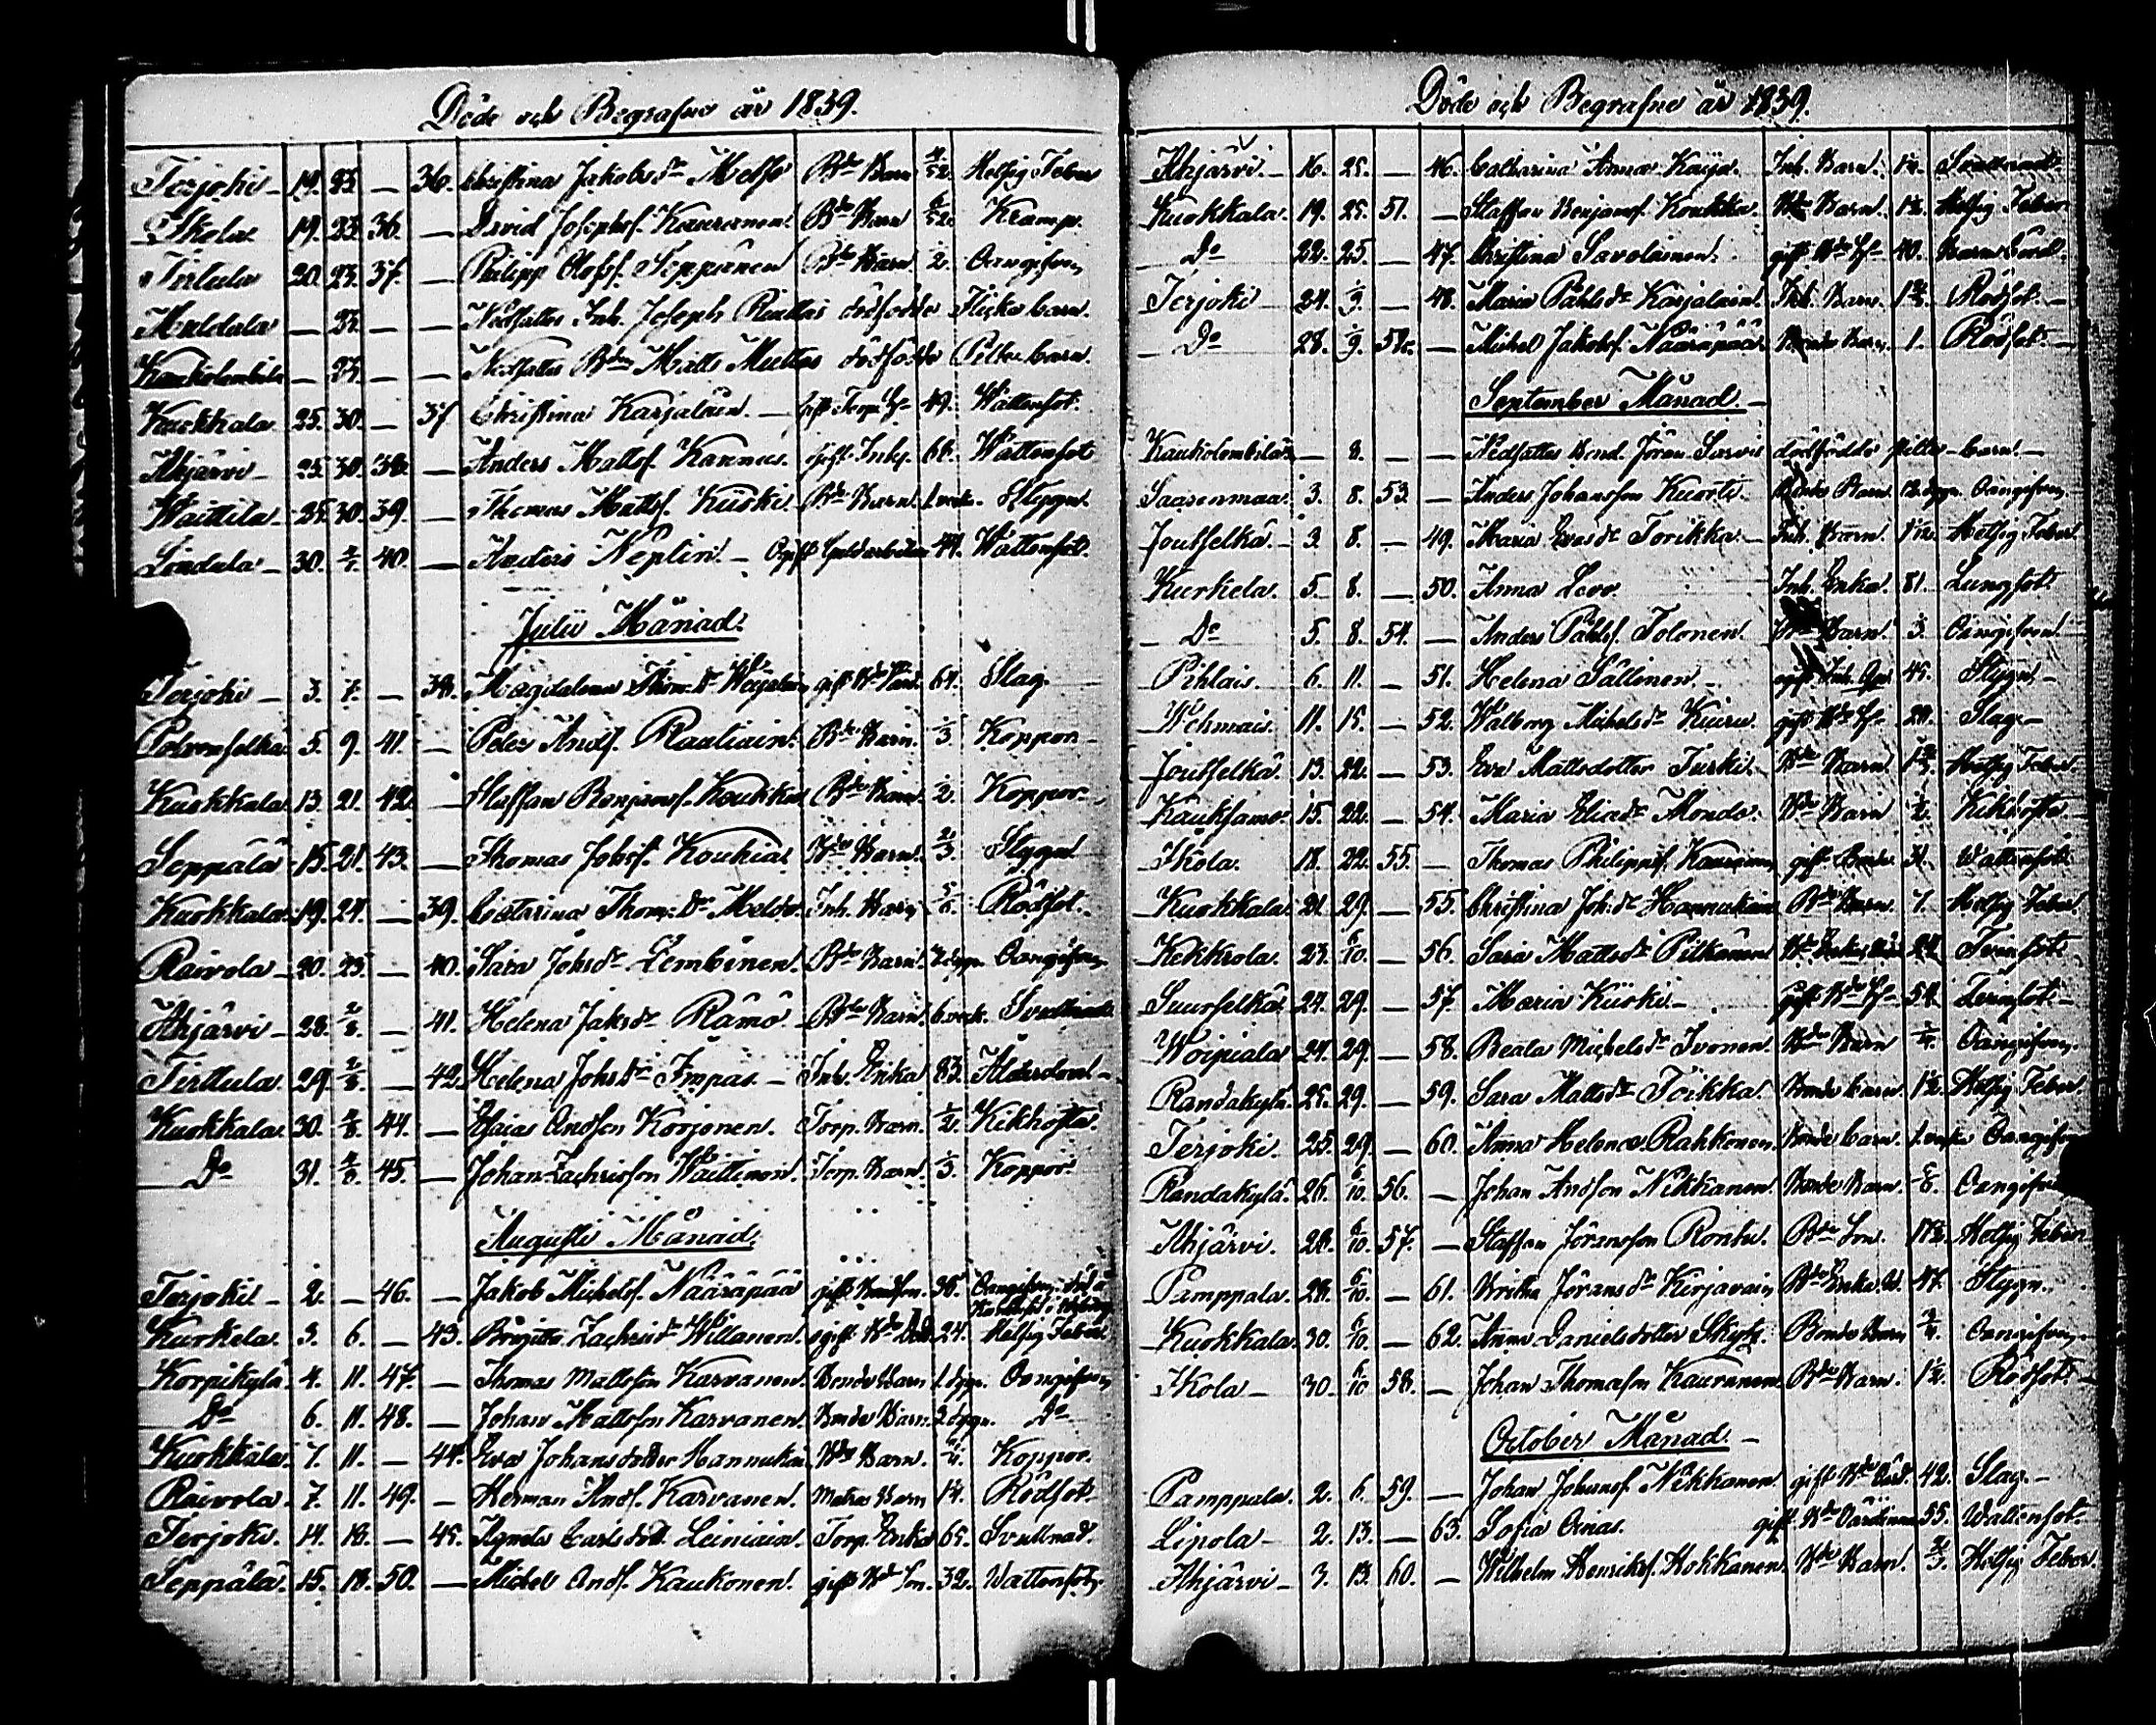 Döde och Begrafne år 1839.
Terjoki 19. 23. — 36. Christina Jakobsdr Melso Bde Barn 4/52 Hetsig Feber
Ikola 19. 23. 36. — David Josephsf. Kauranen Bde Barn 6/52 Kramp.
Tirtula 20. 23. 37. — Philipp Olofsf. Seppänen Bde Barn 1/2. Oangifven
Multala — 23. — — Nedsattes Inh. Joseph dödfödde Flicke barn.
— 23. — — Nedsattes Bdn Matts dödfödde Piltebarn.
Kuokkala 25. 30. — 37 Christina Karjalain. — gift Torp. H— 49. Wattensot.
Ahjärvi 25. 30. 38. — Anders Mattsf. Kannus. gift Inhs. 66. Wattensot
Waittila 25. 30. 39. — Thomas Mattsf. Kiiski Bde Barn. 1 veck. Styggn.
Lindula 30. 2/7. 40. — Anders Neplin. — Ogift 44. Wattensot.
Julii Månad.
Terjoki 3. 7. — 38. Magdalena Thom.dr gift Bde 64. Slag
5. 9. 41. — Peter Andsf. Raatiain. Bde Barn. 1/3. Koppor
Kuokkala 13. 21. 42. — Staffan Benjamsf. Koukka Bde Barn 1/2. Koppor.
Seppälä 15. 21. 43. — Thomas Johsf. Koukia Bde Barn. 2/3. Styggn
Kuokkala 19. 24. — 39. Catarina Thom.dr Inh. Barn 5/6. Rödsot.
Raivola 20. 25. — 40. Sara Johsdr Lembinen. Bde Barn. Oangifven
Ahjärvi 28. 2/8. — 41. Helena Jaksdr Rämö. Bde Barn. 6 veck. Svullnad
Tirttula 29. 2/8. — 42. Helena Johsdr Impas. — Inh. Enka 83. Ålderdom
Kuokkala 30. 4/8. 44. — Esaias Andson Korjonen. Torp. Barn. 1/2. Kikhosta.
Do 31. 4/8. 45. — Johan Zachrisson Waittinen. Torp. Barn. 1/3. Koppor
Augusti Månad.
Terjoki 2. — 46. — Jakob Michelsf. Nääräpää gift Bondson. 38. Oangifven, död
Kurkela 3. 6. — 43. Brigitta Zachrisdr Willanen. ogift Bde 24. Hetsig Feber
Korpikylä. 4. 11. 47. — Thomas Mattsson Karvanen. Bonde Barn 1 dygn. Oangifven
Do 6. 11. 48. — Johan Mattsson Karvanen. Bonde Barn. 2 dygn. Do
Kuokkala 7. 11. — 44. Eva Johansdotter Hannukai Bde Barn. Koppor.
Raivola. 7. 11. 49. — Herman Andsf. Karvanen. Barn Rödsot
Terjoki. 14. 18. — 45. Agneta Carlsdott. Leiniain. Torp. Enka 65. Svullnad.
Seppälä. 15. 18. 50. — Michel Andsf. Kaukonen. gift Bd Son. 32. Wattensot
Döde och Begrafne år 1839.
Ahjärvi 16. 25. — 46. Catharina Anna Inh. Barn. Svullnad.
Kuokkala. 19. 25. 51. — Staffan Benjamsf. Koukka. Bde Barn. Hetsig Feber
Do 22. 25. — 47. Christina Savolainen. gift Bde H— 40. Barnsbörd.
Terjoki 24. 1/9. — 48. Maria Påhlsdr Karjalain. Inh. Barn. Rödsot. —
Do 28. 1/9. 52. — Michel Jakobsf. Nääräpää Bonde Barn. 1. Rödsot —
September Månad. —
— 8. — — Nedsattes Bond. Jöran Sarvis dödfödde pilte-barn. —
Saarenmaa. 3. 8. 53. — Anders Johansson Kuorti. Bonde Barn. 12 dygn. Oangifven
Joutselkä. 3. 8. — 49. Maria Evasdr Torikka. — Inh. Barn. Hetsig Feber.
Kurkela. 5. 8. — 50. Anna Levo. Inh. Enka. 81. Lungsot.
Do 5. 8. 54. — Anders Påhlsf. Tolonen. Barn. 1/3. Oangifven.
Pihlais. 6. 11. — 51. Helena Sällinen. — ogift Inh. 45. Styggn —
Wehmais. 11. 15. — 52. Walborg Michelsdr Kuiru gift Bde H— 24. Slag —
Joutselkä. 13. 22. — 53. Eva Mattsdotter Turki. Bde Barn Hetsig Feber.
15. 22. — 54. Maria Bde Barn 1/2. Kikhosta
Ikola. 18. 22. 55. — Thomas Philippsf. Kauranen gift Bonde 31. Wattensot.
Kuokkala. 21. 29. — 55. Christina Joh.dr Hannukain Bde Barn. 7. Hetsig Feber.
Kekkrola. 23. 6/10. — 56. Sara Mattsdr Pitkänen Bde
Suurselkä. 24. 29. — 57. Maria Kiiski — gift Bde H— 54.
24. 29. — 58. Beata Michelsdr Ivonen. Bde Barn 1/4. Oangifven.
Randakylä. 25. 29. — 59. Sara Mattsdr Töikka. Bonde barn. Hetsig Feber
Terjoki. 25. 29. — 60. Anna Helena Rahkonen. Bonde barn. 1 vecka Oangifven
Randakylä. 26. 6/10. 56. — Johan Andson Nikkanen. Bonde Barn. Oangifven
Ahjärvi. 28. 6/10. 57. — Staffan Jöransson Rontu. Bde Son. Hetsig Feber
Pamppala. 28. 6/10. — 61. Britha Jöransdr Kirjavain Bde Enka 47. Styggn.
Kuokkala. 30. 6/10. — 62. Anna Danielsdotter Bonde Barn 3/4. Oangifven
Ikola — 30. 6/10. 58. — Johan Thomason Kauranen. Bde Barn. Rödsot.
October Månad. —
Pamppala. 2. 6. 59. — Johan Johansf. Nikkanen gift Bde 42. Slag. —
Lipola — 2. 13. — 63. Sofia gift Bde Värdinna 55. Wattensot.
Ahjärvi — 3. 13. 60. — Wilhelm Henriksf. Kokkanen. Bde Barn. 2/3. Hetsig Feber